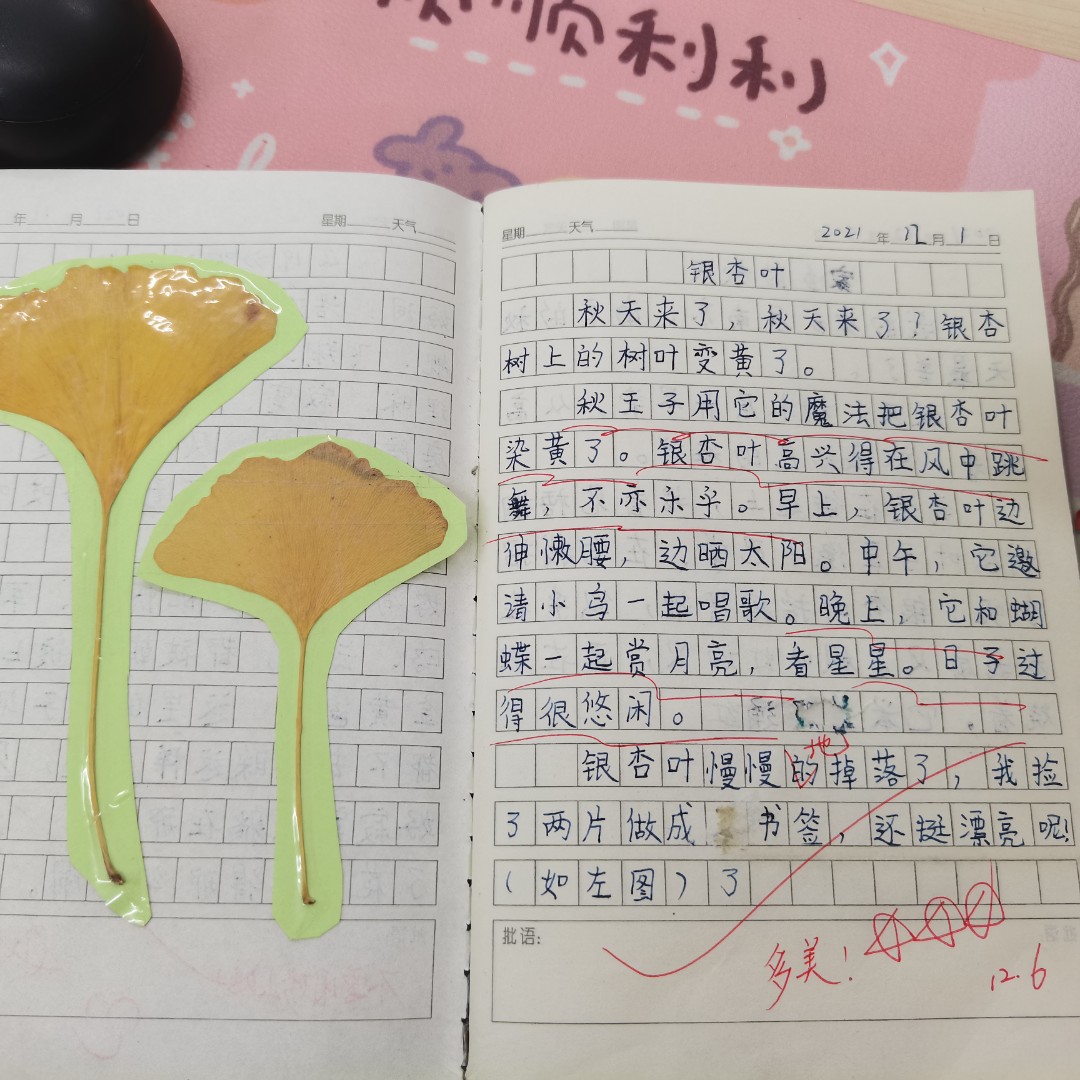 顺利利
年 月 日 星期 天气
星期 天气 2021 年 12 月 1 日
银杏叶
秋天来了，秋天来了！银杏
树上的树叶变黄了。
秋王子用它的魔法把银杏叶
染黄了。银杏叶高兴得在风中跳
舞，不亦乐乎。早上，银杏叶边
伸懒腰，边晒太阳。中午，它邀
请小鸟一起唱歌。晚上，它和蝴
蝶一起赏月亮，看星星。日子过
得很悠闲。
地
银杏叶慢慢的掉落了，我捡
了两片做成书签，还挺漂亮呢!
(如左图)了
批语:
多美!
12.6